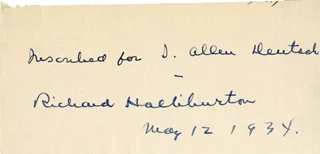 Inscribed for I. Allen Deutsch
-
Richard Halliburton
May 12 1934.